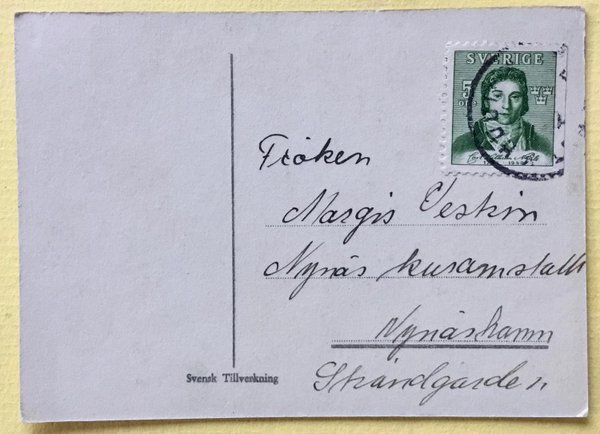 SVERIGE
5
ÖRE
Fröken
Margis Vestin
Nynäs kuranstalt
Nynäshamn
Strandgården
Svensk Tillverkning